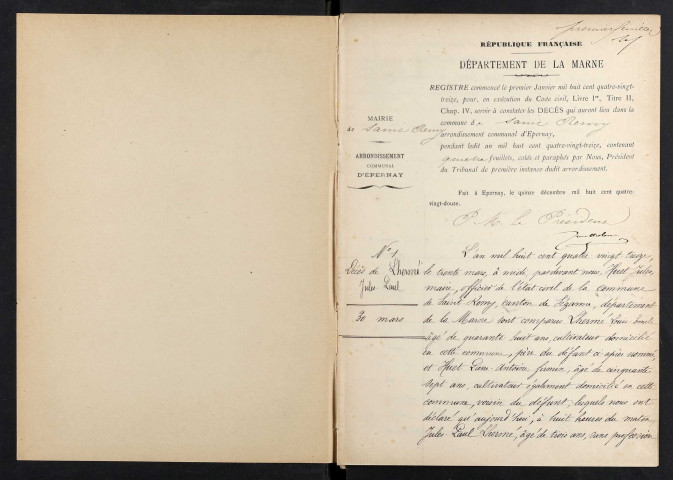 premier feuillet
RÉPUBLIQUE FRANÇAISE
DÉPARTEMENT DE LA MARNE
REGISTRE commencé le premier Janvier mil huit cent quatre-vingt-
treize, pour, en exécution du Code civil, Livre Ier, Titre II,
Chap. IV, servir à constater les DÉCÈS qui auront lieu dans la
commune de Saint Remy
arrondissement communal d'Epernay,
pendant ledit an mil huit cent quatre-vingt-treize, contenant
quatre feuillets, cotés et paraphés par Nous, Président
du Tribunal de première instance dudit arrondissement.
MAIRIE
de Saint Remy
ARRONDISSEMENT
COMMUNAL
D'ÉPERNAY
Fait à Epernay, le quinze décembre mil huit cent quatre-
vingt-douze.
P. M. le Président
N° 1
Décès de Lhermé
Jules Paul
30 mars
L'an mil huit cent quatre vingt treize,
le trente mars, à midi, pardevant nous, Huet Jules,
maire, officier de l'état civil de la commune
de Saint Remy, canton de Sézanne, département
de la Marne sont comparus Lhermé Louis
âgé de quarante huit ans, cultivateur domicilié
en cette commune, père du défunt ci après nommé
et Huet Louis Antoine Firmin, âgé de cinquante
sept ans, cultivateur également domicilié en cette
commune, voisin du défunt; lesquels nous ont
déclaré qu'aujourd'hui, à huit heures du matin
Jules Paul Lhermé, âgé de trois ans, sans profession